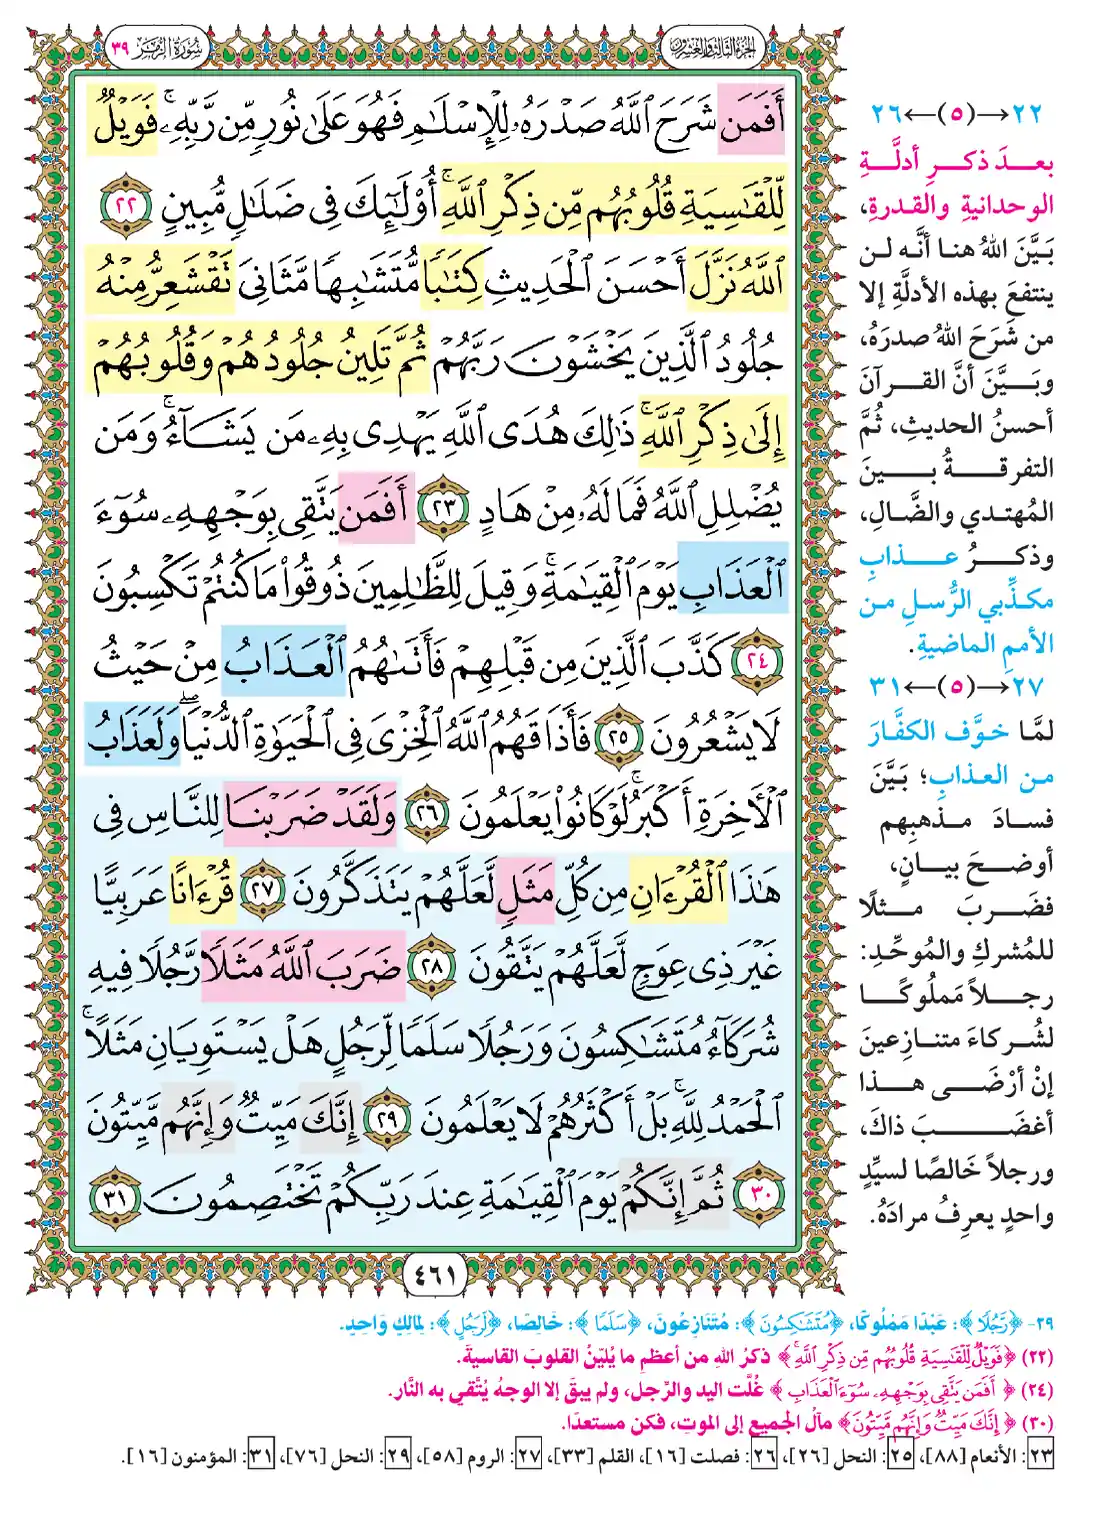 الجزء الثالث والعشرون
سورة الزمر ٣٩
أَفَمَن شَرَحَ ٱللَّهُ صَدۡرَهُۥ لِلۡإِسۡلَٰمِ فَهُوَ عَلَىٰ نُورٖ مِّن رَّبِّهِۦۚ فَوَيۡلٞ
لِّلۡقَٰسِيَةِ قُلُوبُهُم مِّن ذِكۡرِ ٱللَّهِۚ أُوْلَٰٓئِكَ فِي ضَلَٰلٖ مُّبِينٍ ٢٢
ٱللَّهُ نَزَّلَ أَحۡسَنَ ٱلۡحَدِيثِ كِتَٰبٗا مُّتَشَٰبِهٗا مَّثَانِيَ تَقۡشَعِرُّ مِنۡهُ
جُلُودُ ٱلَّذِينَ يَخۡشَوۡنَ رَبَّهُمۡ ثُمَّ تَلِينُ جُلُودُهُمۡ وَقُلُوبُهُمۡ
إِلَىٰ ذِكۡرِ ٱللَّهِۚ ذَٰلِكَ هُدَى ٱللَّهِ يَهۡدِي بِهِۦ مَن يَشَآءُۚ وَمَن
يُضۡلِلِ ٱللَّهُ فَمَا لَهُۥ مِنۡ هَادٍ ٢٣ أَفَمَن يَتَّقِي بِوَجۡهِهِۦ سُوٓءَ
ٱلۡعَذَابِ يَوۡمَ ٱلۡقِيَٰمَةِۚ وَقِيلَ لِلظَّٰلِمِينَ ذُوقُواْ مَا كُنتُمۡ تَكۡسِبُونَ
٢٤ كَذَّبَ ٱلَّذِينَ مِن قَبۡلِهِمۡ فَأَتَىٰهُمُ ٱلۡعَذَابُ مِنۡ حَيۡثُ
لَا يَشۡعُرُونَ ٢٥ فَأَذَاقَهُمُ ٱللَّهُ ٱلۡخِزۡيَ فِي ٱلۡحَيَوٰةِ ٱلدُّنۡيَاۖ وَلَعَذَابُ
ٱلۡأٓخِرَةِ أَكۡبَرُۚ لَوۡ كَانُواْ يَعۡلَمُونَ ٢٦ وَلَقَدۡ ضَرَبۡنَا لِلنَّاسِ فِي
هَٰذَا ٱلۡقُرۡءَانِ مِن كُلِّ مَثَلٖ لَّعَلَّهُمۡ يَتَذَكَّرُونَ ٢٧ قُرۡءَانًا عَرَبِيًّا
غَيۡرَ ذِي عِوَجٖ لَّعَلَّهُمۡ يَتَّقُونَ ٢٨ ضَرَبَ ٱللَّهُ مَثَلٗا رَّجُلٗا فِيهِ
شُرَكَآءُ مُتَشَٰكِسُونَ وَرَجُلٗا سَلَمٗا لِّرَجُلٍ هَلۡ يَسۡتَوِيَانِ مَثَلًاۚ
ٱلۡحَمۡدُ لِلَّهِۚ بَلۡ أَكۡثَرُهُمۡ لَا يَعۡلَمُونَ ٢٩ إِنَّكَ مَيِّتٞ وَإِنَّهُم مَّيِّتُونَ
٣٠ ثُمَّ إِنَّكُمۡ يَوۡمَ ٱلۡقِيَٰمَةِ عِندَ رَبِّكُمۡ تَخۡتَصِمُونَ ٣١
٤٦١
٢٢→(٥)←٢٦
بعدَ ذكرِ أدلَّةِ
الوحدانيةِ والقدرةِ،
بَيَّنَ اللهُ هنا أنَّه لن
ينتفعَ بهذه الأدلَّةِ إلا
من شَرَحَ اللهُ صدرَهُ،
وبَيَّنَ أنَّ القرآنَ
أحسنُ الحديثِ، ثُمَّ
التفرقةُ بينَ
المُهتدي والضَّالِ،
وذكرُ عذابِ
مكذِّبي الرُّسلِ من
الأممِ الماضيةِ.
٢٧→(٥)←٣١
لمَّا خوَّف الكفَّارَ
من العذابِ؛ بَيَّنَ
فسادَ مذهبِهم
أوضحَ بيانٍ،
فضَربَ مثلًا
للمُشركِ والمُوحِّدِ:
رجلاً مَملُوكًا
لشُركاءَ متنازِعينَ
إنْ أرْضَى هذا
أغضَبَ ذاكَ،
ورجلاً خَالصًا لسيِّدٍ
واحدٍ يعرِفُ مرادَهُ.
٢٩- ﴿رَّجُلًا﴾: عَبْدًا مَمْلُوكًا، ﴿مُتَشَٰكِسُونَ﴾: مُتَنَازِعُونَ، ﴿سَلَمًا﴾: خَالِصًا، ﴿لِّرَجُلٍ﴾: لِمَالِكٍ وَاحِدٍ.
(٢٢) ﴿فَوَيْلٌ لِّلْقَٰسِيَةِ قُلُوبُهُم مِّن ذِكْرِ ٱللَّهِۚ﴾ ذكرُ اللهِ من أعظمِ ما يُليِّنُ القلوبَ القاسيةَ.
(٢٤) ﴿أَفَمَن يَتَّقِي بِوَجْهِهِۦ سُوٓءَ ٱلْعَذَابِ﴾ غُلَّت اليد والرِّجل، ولم يبقَ إلا الوجهُ يُتَّقي به النَّار.
(٣٠) ﴿إِنَّكَ مَيِّتٌ وَإِنَّهُم مَّيِّتُونَ﴾ مآلُ الجميعِ إلى الموتِ، فكن مستعدًا.
٢٣: الأنعام [٨٨]، ٢٥: النحل [٢٦]، ٢٦: فصلت [١٦]، القلم [٣٣]، ٢٧: الروم [٥٨]، ٢٩: النحل [٧٦]، ٣١: المؤمنون [١٦].